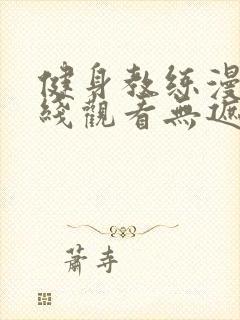 健身教练漫
线觀看無遮
蕭寺